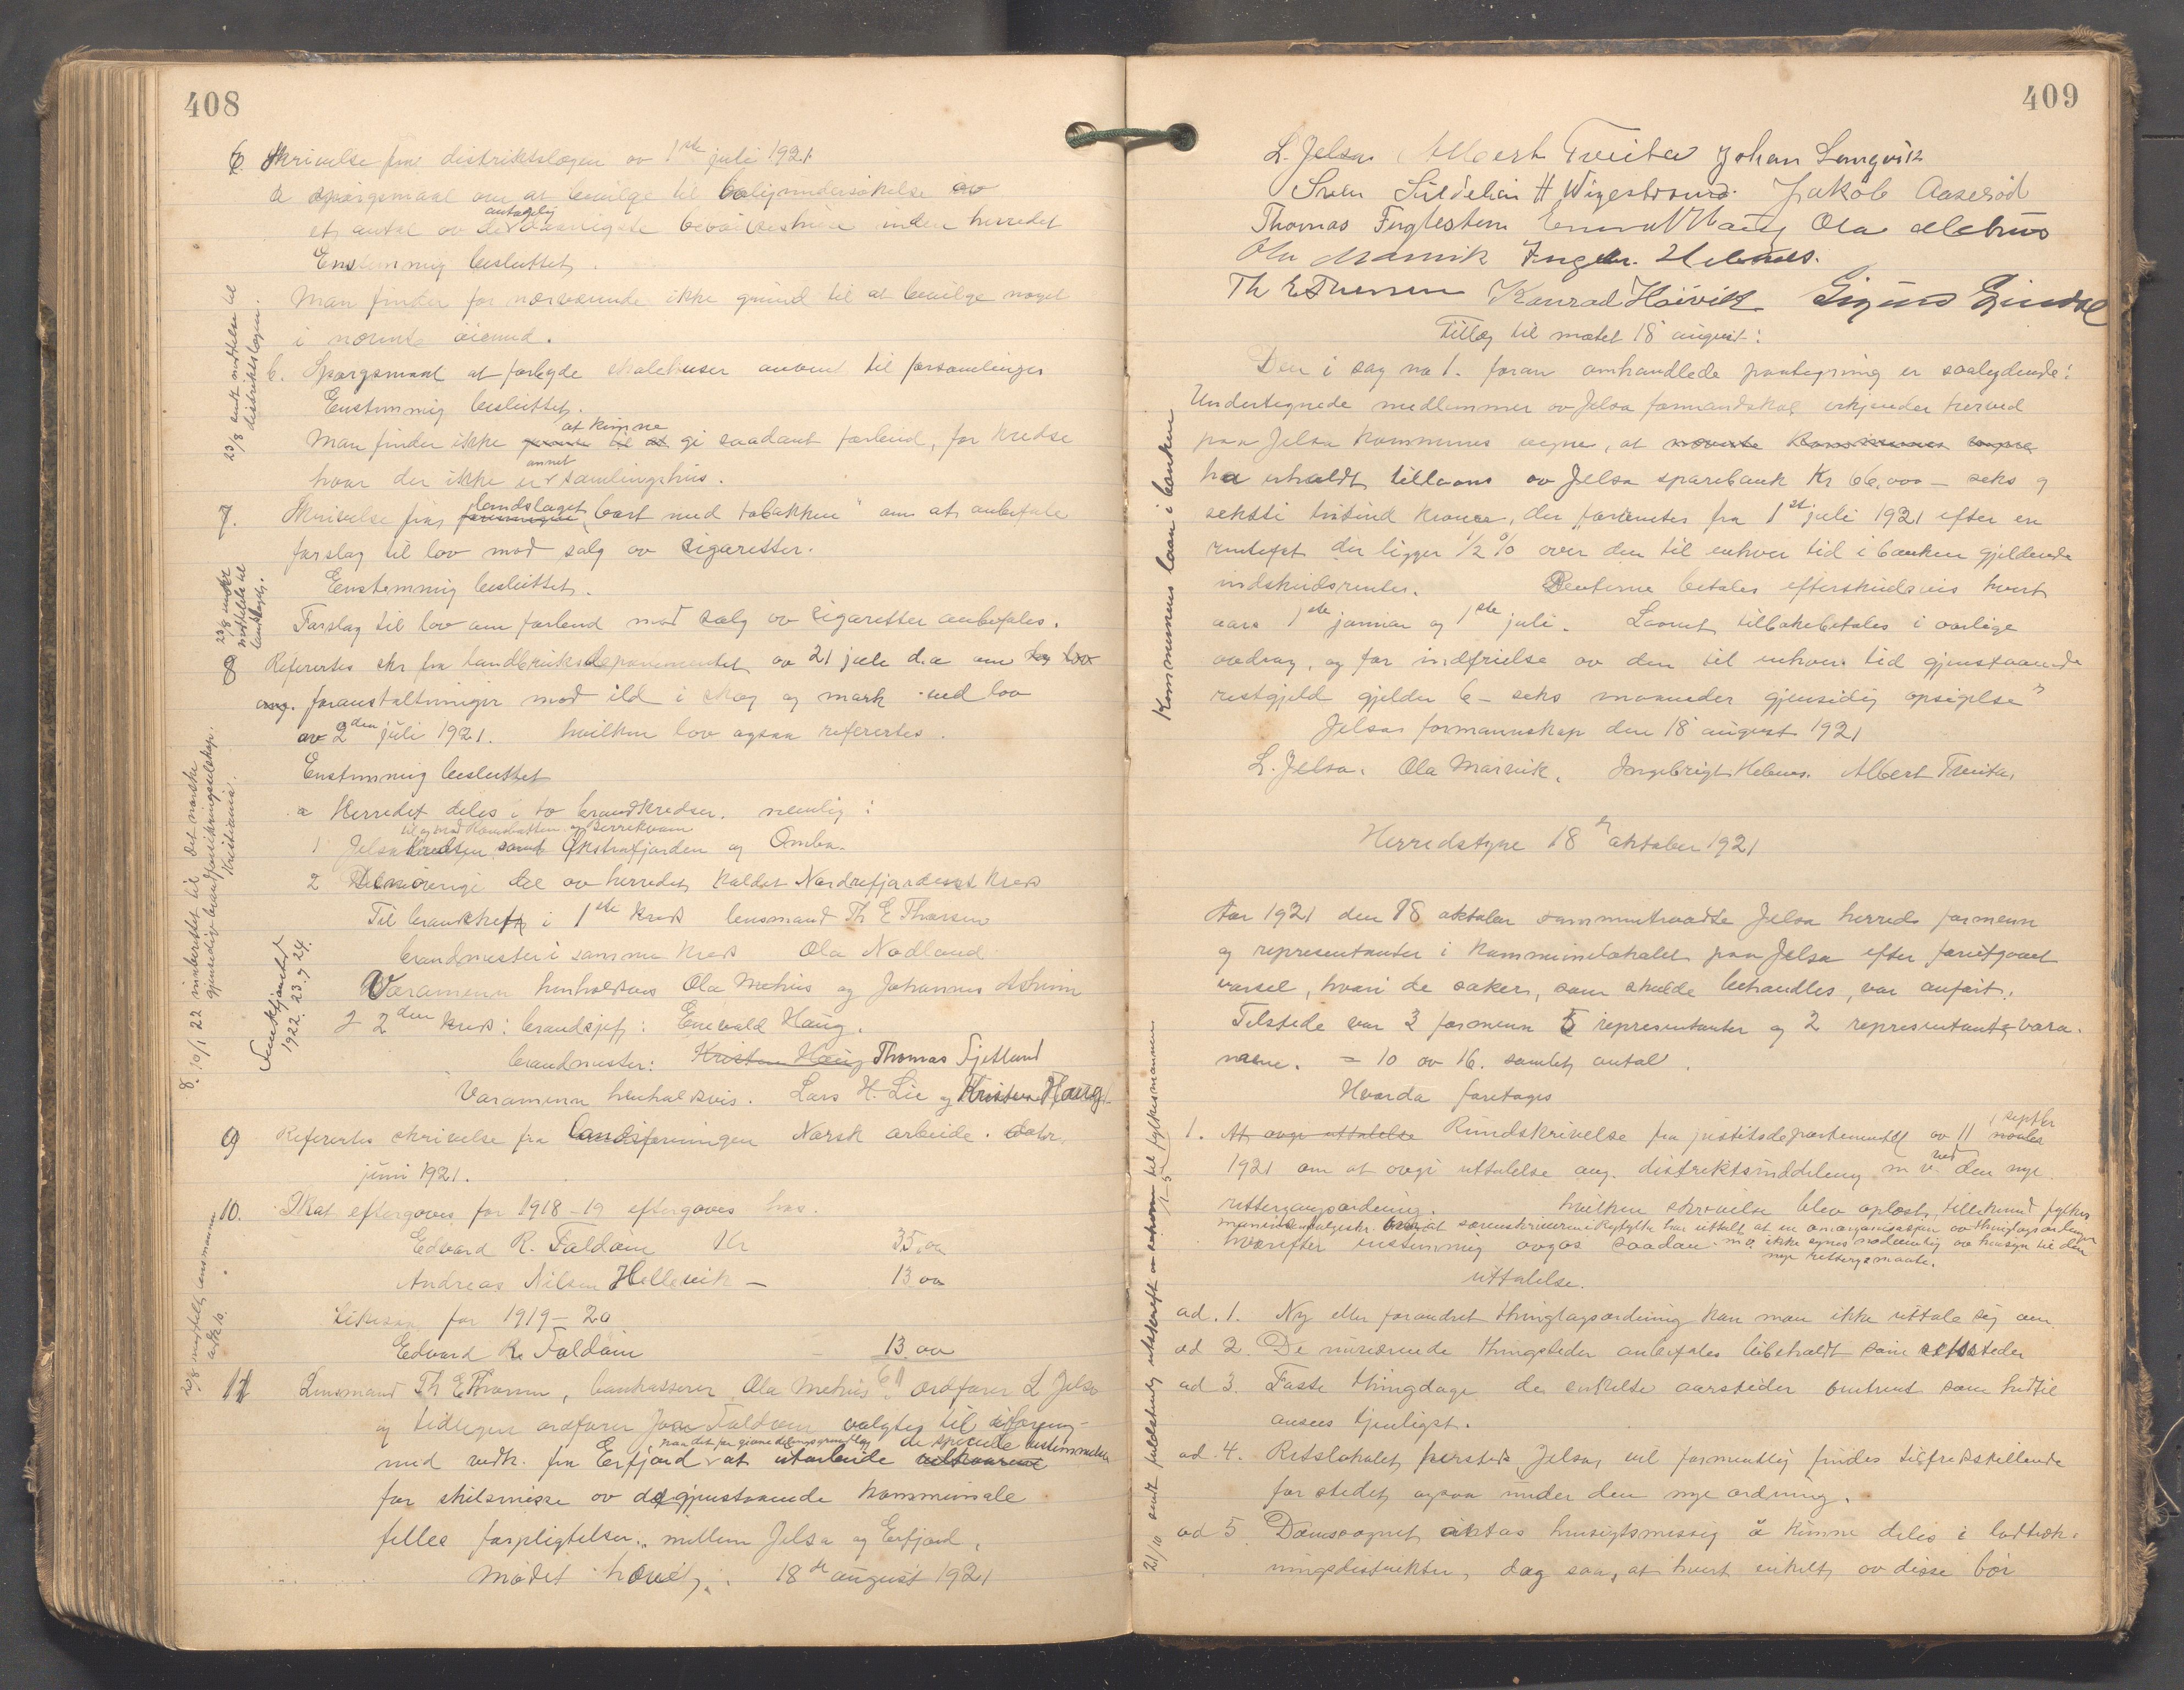 408
6 Skrivelse fra distriktslægen av 1ste juli 1921.
a spørgsmaal om at bevilge til boligundersøkelse av
et antal av de antagelig daarligste beboelseshuse inden herredet
Enstemmig besluttet.
Man finder for nærværende ikke grund til at bevilge noget
i nævnte øiemed.
b. Spørgsmaal at forbyde skolehuser anvent til forsamlinger
Enstemmig besluttet.
Man finder ikke at kunne gi saadant forbud, for kredse
hvor der ikke er annet samlingshus.
23/8 sendt meddelelse til
distriktslægen.
7. Skrivelse fra landslaget "bort med tobakken" om at anbefale
forslag til lov mod salg av cigaretter.
Enstemmig besluttet.
Forslag til lov om forbud mod salg av cigaretter anbefales.
23/8 underrettelse til
landslaget.
8 Refertes skr fra landbruksdepartementet av 21 juli d.a om lag lov
ang. foranstaltninger mod ild i skog og mark ved lov
av 2den juli 1921. hvilken lov ogsaa refertes.
Enstemmig besluttet
a Herredet deles i to brandkredser. nemlig:
1 Jelsakredsen til og med Hamrabotten og Berrekvam samt Økstrafjorden og Ombo.
2 Den øvrige del av herredet kaldet Nordrefjordens kreds
Til brandchef i 1ste kreds lensmand Th E Thorsen
brandmester i samme kreds Ola Nødland
Varamenn henholdsvis Ola Mehus og Johannes Asheim
I 2den kreds: brandsjef: Enevald Haug.
brandmester: Kristen Haug Thomas Fjetland
Varamenn henholdsvis. Lars H. Lie og Kristen Haug.
8. 10/1 22 innberettet til det norske
gjensidige brandforsikringsselskap.
Kristiania.
1922. 23. og 24.
9 Refertes skrivelse fra landsforeningen Norsk arbeide. datr.
juni 1921.
10. Skat eftergives for 1918-19 eftergives hos.
Edvard R. Foldøen Kr 35,00
Andreas Nilsen Hellevik – 13 00
Likesaa for 1919–20
Edvard R. Foldøen – 13 00
61
20/8 meddelt lensmannen
11 Lensmand Th E Thorsen, bankkasserer Ola Mehus, ordfører L Jelsa
og tidligere ordfører Foldøen valgtes til i forening
med vedk. fra Erfjord paa det foregivne delingsgrundlag at utarbeide vilkaarene de specielle bestemmelser
for skilsmisse av de gjenstaaende kommunale
felles forpligtelser mellem Jelsa og Erfjord.
Mødet hævet. 18de august 1921
409
L. Jelsa Albert Tveita Johan Longvik
Sven H Wigestrand. Jakob Aaserød
Thomas Fuglestein Enevald Haug Ola Mehus
Ola Marvik Ingebr. Hebnes.
Th E Thorsen Konrad Høivik
Tillæg til møtet 18 august:
Den i sag no 1. foran omhandlede paategning er saalydende:
Undertegnede medlemmer av Jelsa formandskap erkjender herved
paa Jelsa kommunes vegne, at nævnte kommunes vegne
ha erholdt tillaans av Jelsa sparebank Kr 66,000 – seks og
seksti tusind kroner, der forrentes fra 1st juli 1921 efter en
rentefot der ligger 1/2 % over den til enhver tid i banken gjeldende
indskudsrenter. Renterne betales efterskudsvis hvert
aars 1ste januar og 1ste juli. Laanet tilbakebetales i aarlige
avdrag, og for indfrielse av den til enhver tid gjenstaaende
restgjeld gjelder 6 – seks maaneder gjensidig opsigelse"
Jelsa formannskap den 18 august 1921
L. Jelsa. Ola Marvik. Ingebrigt Hebnes. Albert Tveita.
Kommunens laan i banken
Herredstyre 18 oktober 1921
Aar 1921 den 18 oktober sammentraadte Jelsa herreds formenn
og representanter i kommunelokalet paa Jelsa efter forutgaaet
varsel, hvori de saker, som skulde behandles, var anført.
Tilstede var 3 formenn 5 representanter og 2 representantvara-
menn. = 10 av 16. samlet antal.
Hvorda foretages
1. At avgi uttalelse Rundskrivelse fra justitsdepartementet av 11 septbr
1921 om at avgi uttalelse ang. distriktsinddeling m v. ved den nye
rettergangsordning. hvilken skrivelse blev oplæst, tillikemed fylkes
mannens følgeskr. om at sorenskriveren i Ryfylke har uttalt at en omorganisasjon av thinglagsordningen
m.v. ikke synes nødvendig av hensyn til den
nye rettergangsmaate.
hvorefter enstemmig avgas saadan
uttalelse.
ad. 1. Ny eller forandret thinglagsordning kan man ikke uttale sig om.
ad 2. De nuværende thingsteder anbefales bibeholdt som retssteder
ad 3. Faste thingdage de enkelte aarstider omtrent som hidtil
ansees tjenligst.
ad. 4. Retslokalet hersteds Jelsa, vil formentlig findes tilfredsstillende
for stedet ogsaa under den nye ordning.
ad 5 Domssognet antas hensigtsmessig å kunne deles i lodtræk-
ningsdistrikter, dog saa, at hvert enkelt av disse bør
21/10 sendt fuldstendig utskrift av sak nr. 1-5 til fylkesmannen